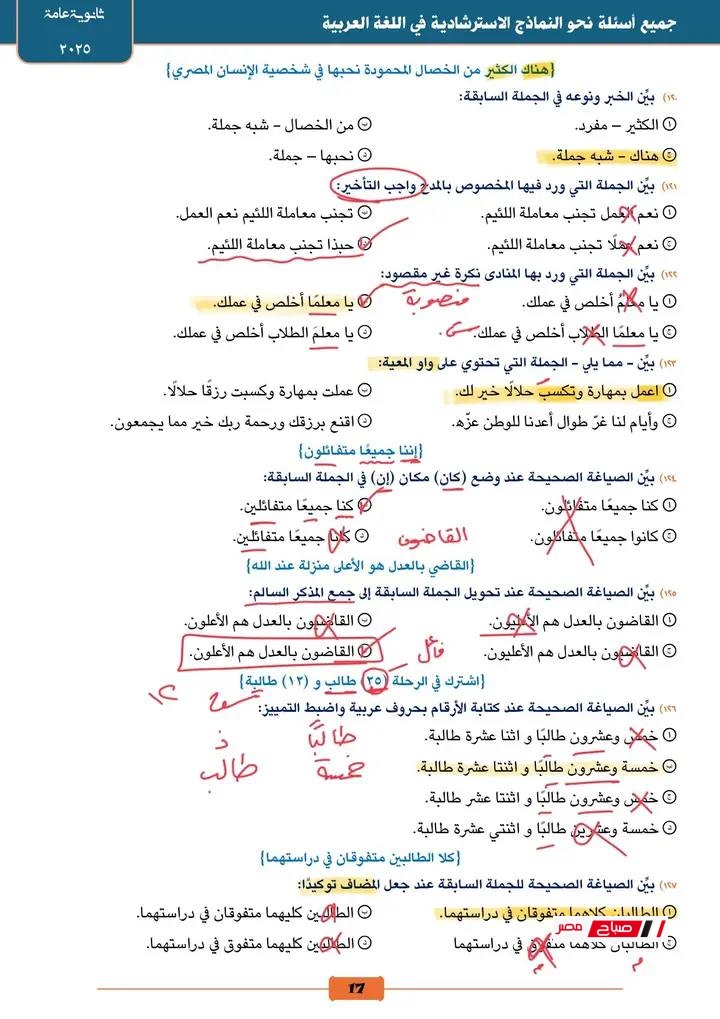 جميع أسئلة نحو النماذج الاسترشادية في اللغة العربية
ثانوية عامة
٢٠٢٥
{هناك الكثير من الخصال المحمودة نحبها في شخصية الإنسان المصري}
١٢٠) بيِّن الخبر ونوعه في الجملة السابقة:
أ الكثير – مفرد. ب من الخصال – شبه جملة.
ج هناك – شبه جملة. د نحبها – جملة.
١٢١) بيِّن الجملة التي ورد فيها المخصوص بالمدح واجب التأخير:
أ نعم العمل تجنب معاملة اللئيم. ب تجنب معاملة اللئيم نعم العمل.
ج نعم عملًا تجنب معاملة اللئيم. د حبذا تجنب معاملة اللئيم.
١٢٢) بيِّن الجملة التي ورد بها المنادى نكرة غير مقصود:
أ يا معلمُ أخلص في عملك. ب يا معلمًا أخلص في عملك.
منصوبة
ج يا معلمًا الطلاب أخلص في عملك. د يا معلمَ الطلاب أخلص في عملك.
١٢٣) بيِّن – مما يلي – الجملة التي تحتوي على واو المعية:
أ اعمل بمهارة وتكسبَ حلالًا خير لك. ب عملت بمهارة وكسبت رزقًا حلالًا.
ج وأيام لنا غرّ طوال أعدنا للوطن عزّه. د اقنع برزقك ورحمة ربك خير مما يجمعون.
{إننا جميعًا متفائلون}
١٢٤) بيِّن الصياغة الصحيحة عند وضع (كان) مكان (إن) في الجملة السابقة:
أ كنا جميعًا متفائلون. ب كنا جميعًا متفائلين.
ج كانوا جميعًا متفائلون. د كلنا جميعًا متفائلين.
القاضون
{القاضي بالعدل هو الأعلى منزلة عند الله}
١٢٥) بيِّن الصياغة الصحيحة عند تحويل الجملة السابقة إلى جمع المذكر السالم:
أ القاضون بالعدل هم الأعليون. ب القاضيون بالعدل هم الأعلون.
ج القاضيون بالعدل هم الأعليون. د القاضون بالعدل هم الأعلون.
{اشترك في الرحلة (٢٥) طالب و (١٢) طالبة}
١٢
١٢٦) بيِّن الصياغة الصحيحة عند كتابة الأرقام بحروف عربية واضبط التمييز:
أ خمس وعشرون طالبًا و اثنا عشرة طالبة.
طالبًا ذ
ب خمسة وعشرون طالبًا و اثنتا عشرة طالبة.
خمسة طالب
ج خمس وعشرون طالبًا و اثنتا عشر طالبة.
د خمسة وعشرين طالبًا و اثنتي عشرة طالبة.
{كلا الطالبين متفوقان في دراستهما}
١٢٧) بيِّن الصياغة الصحيحة للجملة السابقة عند جعل المضاف توكيدًا:
أ الطالبان كلاهما متفوقان في دراستهما. ب الطالبين كليهما متفوقان في دراستهما.
ج الطالبان كلاهما متفوق في دراستهما د الطالبين كليهما متفوق في دراستهما.
صباح مصر
17